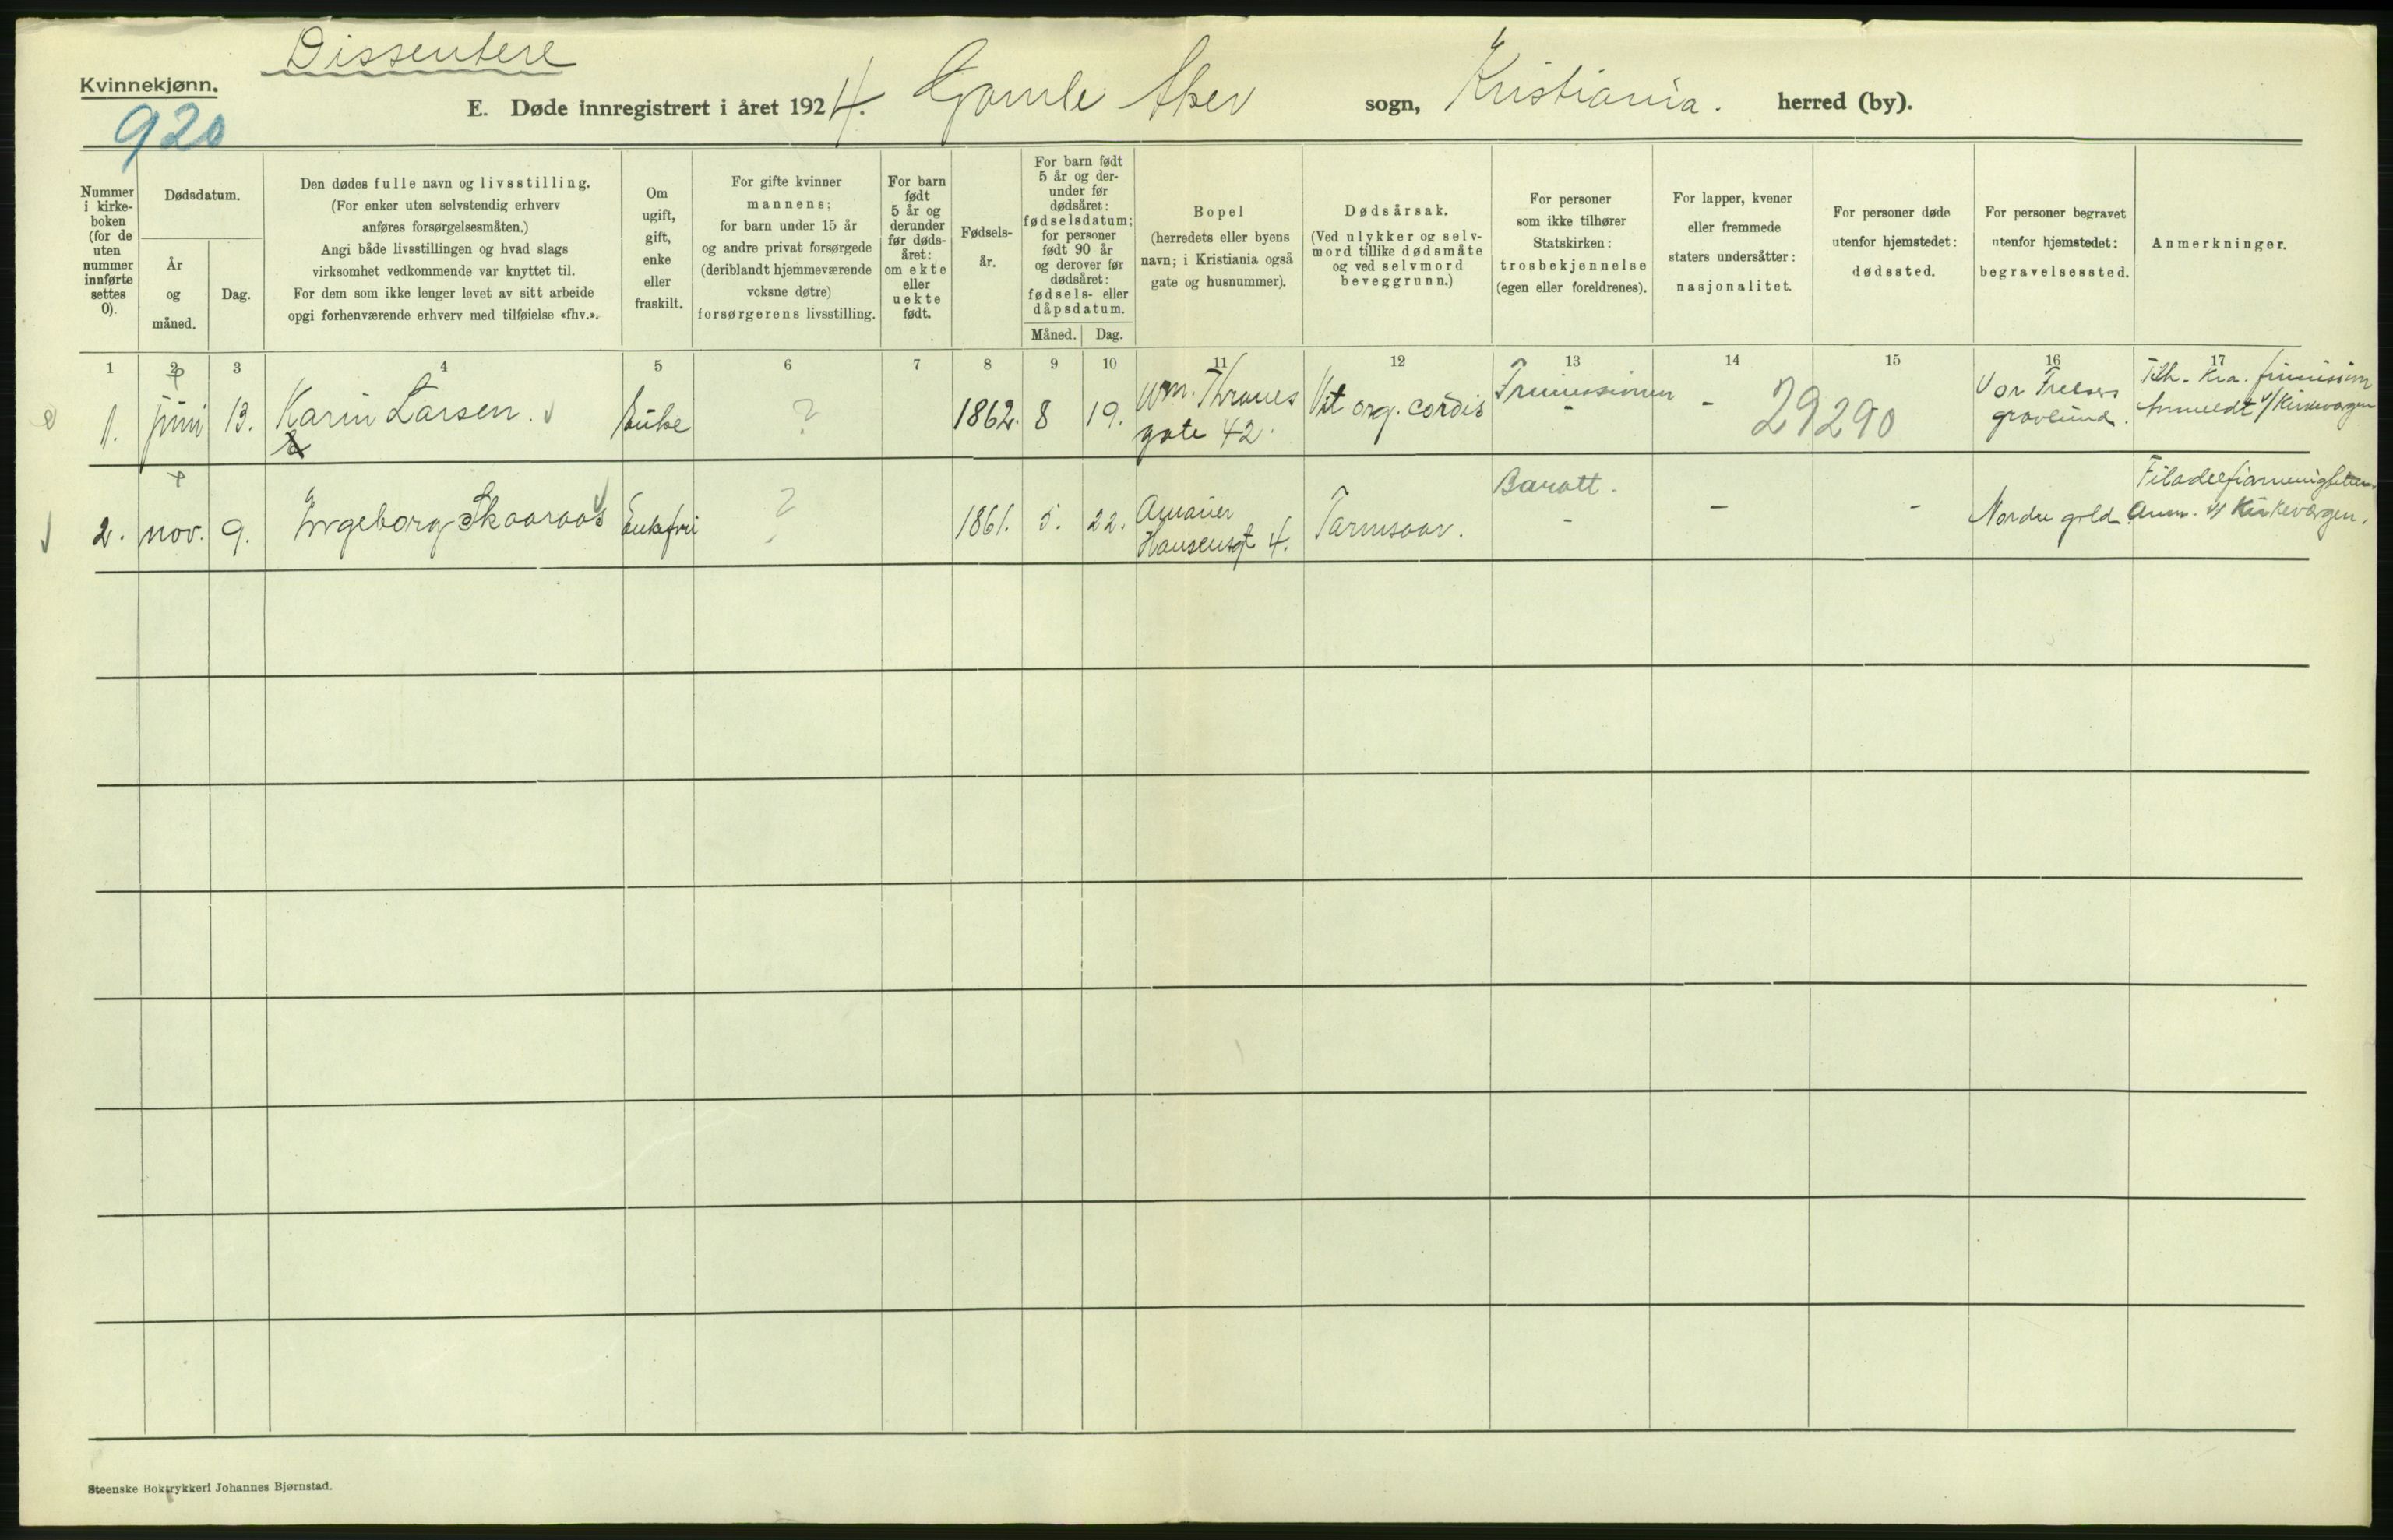 Dissentere
Kvinnekjønn.
920
E. Døde innregistrert i året 1924. Gamle Aker sogn, Kristiania. herred (by).
Nummer
i kirke-
boken
(for de
uten
nummer
innførte
settes
0).
Dødsdatum.
År
og
måned.
Dag.
Den dødes fulle navn og livsstilling.
(For enker uten selvstendig erhverv
anføres forsørgelsesmåten.)
Angi både livsstillingen og hvad slags
virksomhet vedkommende var knyttet til.
For dem som ikke lenger levet av sitt arbeide
opgi forhenværende erhverv med tilføielse «fhv.».
Om
ugift,
gift,
enke
eller
fraskilt.
For gifte kvinner
mannens;
for barn under 15 år
og andre privat forsørgede
(deriblandt hjemmeværende
voksne døtre)
forsørgerens livsstilling.
For barn
født
5 år og
derunder
før døds-
året:
om ekte
eller
uekte
født.
Fødsels-
år.
For barn født
5 år og der-
under før
dødsåret:
fødselsdatum;
for personer
født 90 år
og derover før
dødsåret:
fødsels- eller
dåpsdatum.
Måned. Dag.
Bopel
(herredets eller byens
navn; i Kristiania også
gate og husnummer).
Dødsårsak.
(Ved ulykker og selv-
mord tillike dødsmåte
og ved selvmord
beveggrunn.)
For personer
som ikke tilhører
Statskirken:
trosbekjennelse
(egen eller foreldrenes).
For lapper, kvener
eller fremmede
staters undersåtter:
nasjonalitet.
For personer døde
utenfor hjemstedet:
dødssted.
For personer begravet
utenfor hjemstedet:
begravelsessted.
Anmerkninger.
1 2 3 4 5 6 7 8 9 10 11 12 13 14 15 16 17
1. juni 13. Karin Larsen. Enke ? 1862. 8 19.
Wm. Thranes
gate 42.
Vit org. cordis
Frimissionen
-
-
29290
Vor Frelsers
gravlund.
Tilh. Kra. frimission
Anmeldt v/ Kirkevergen
2. nov. 9. Ingeborg Skaaraas Enkefru ? 1861. 5. 22.
Hansensgt 4.
Tarmsaar.
-
-
-
Nordre gvld.
Filadelfiamenigheten.
Anm. v/ Kirkevergen.
Steenske Boktrykkeri Johannes Bjørnstad.